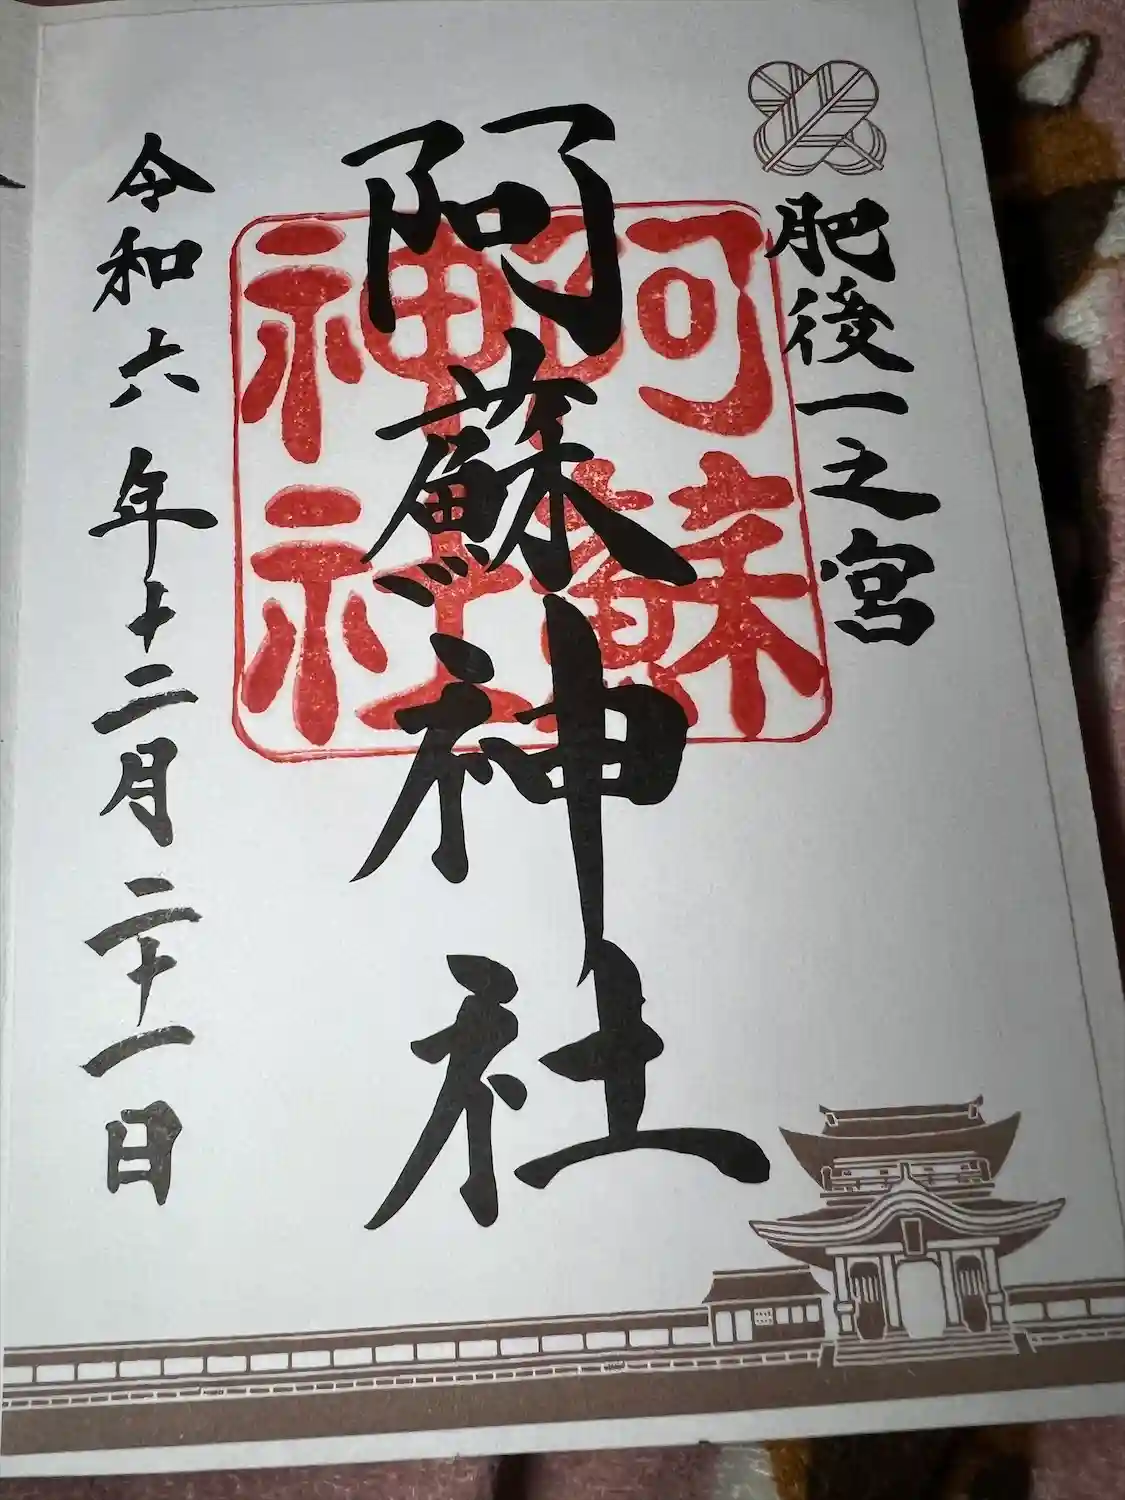 肥後一之宮
阿蘇神社
阿蘇
神社
令和六年十二月二十一日